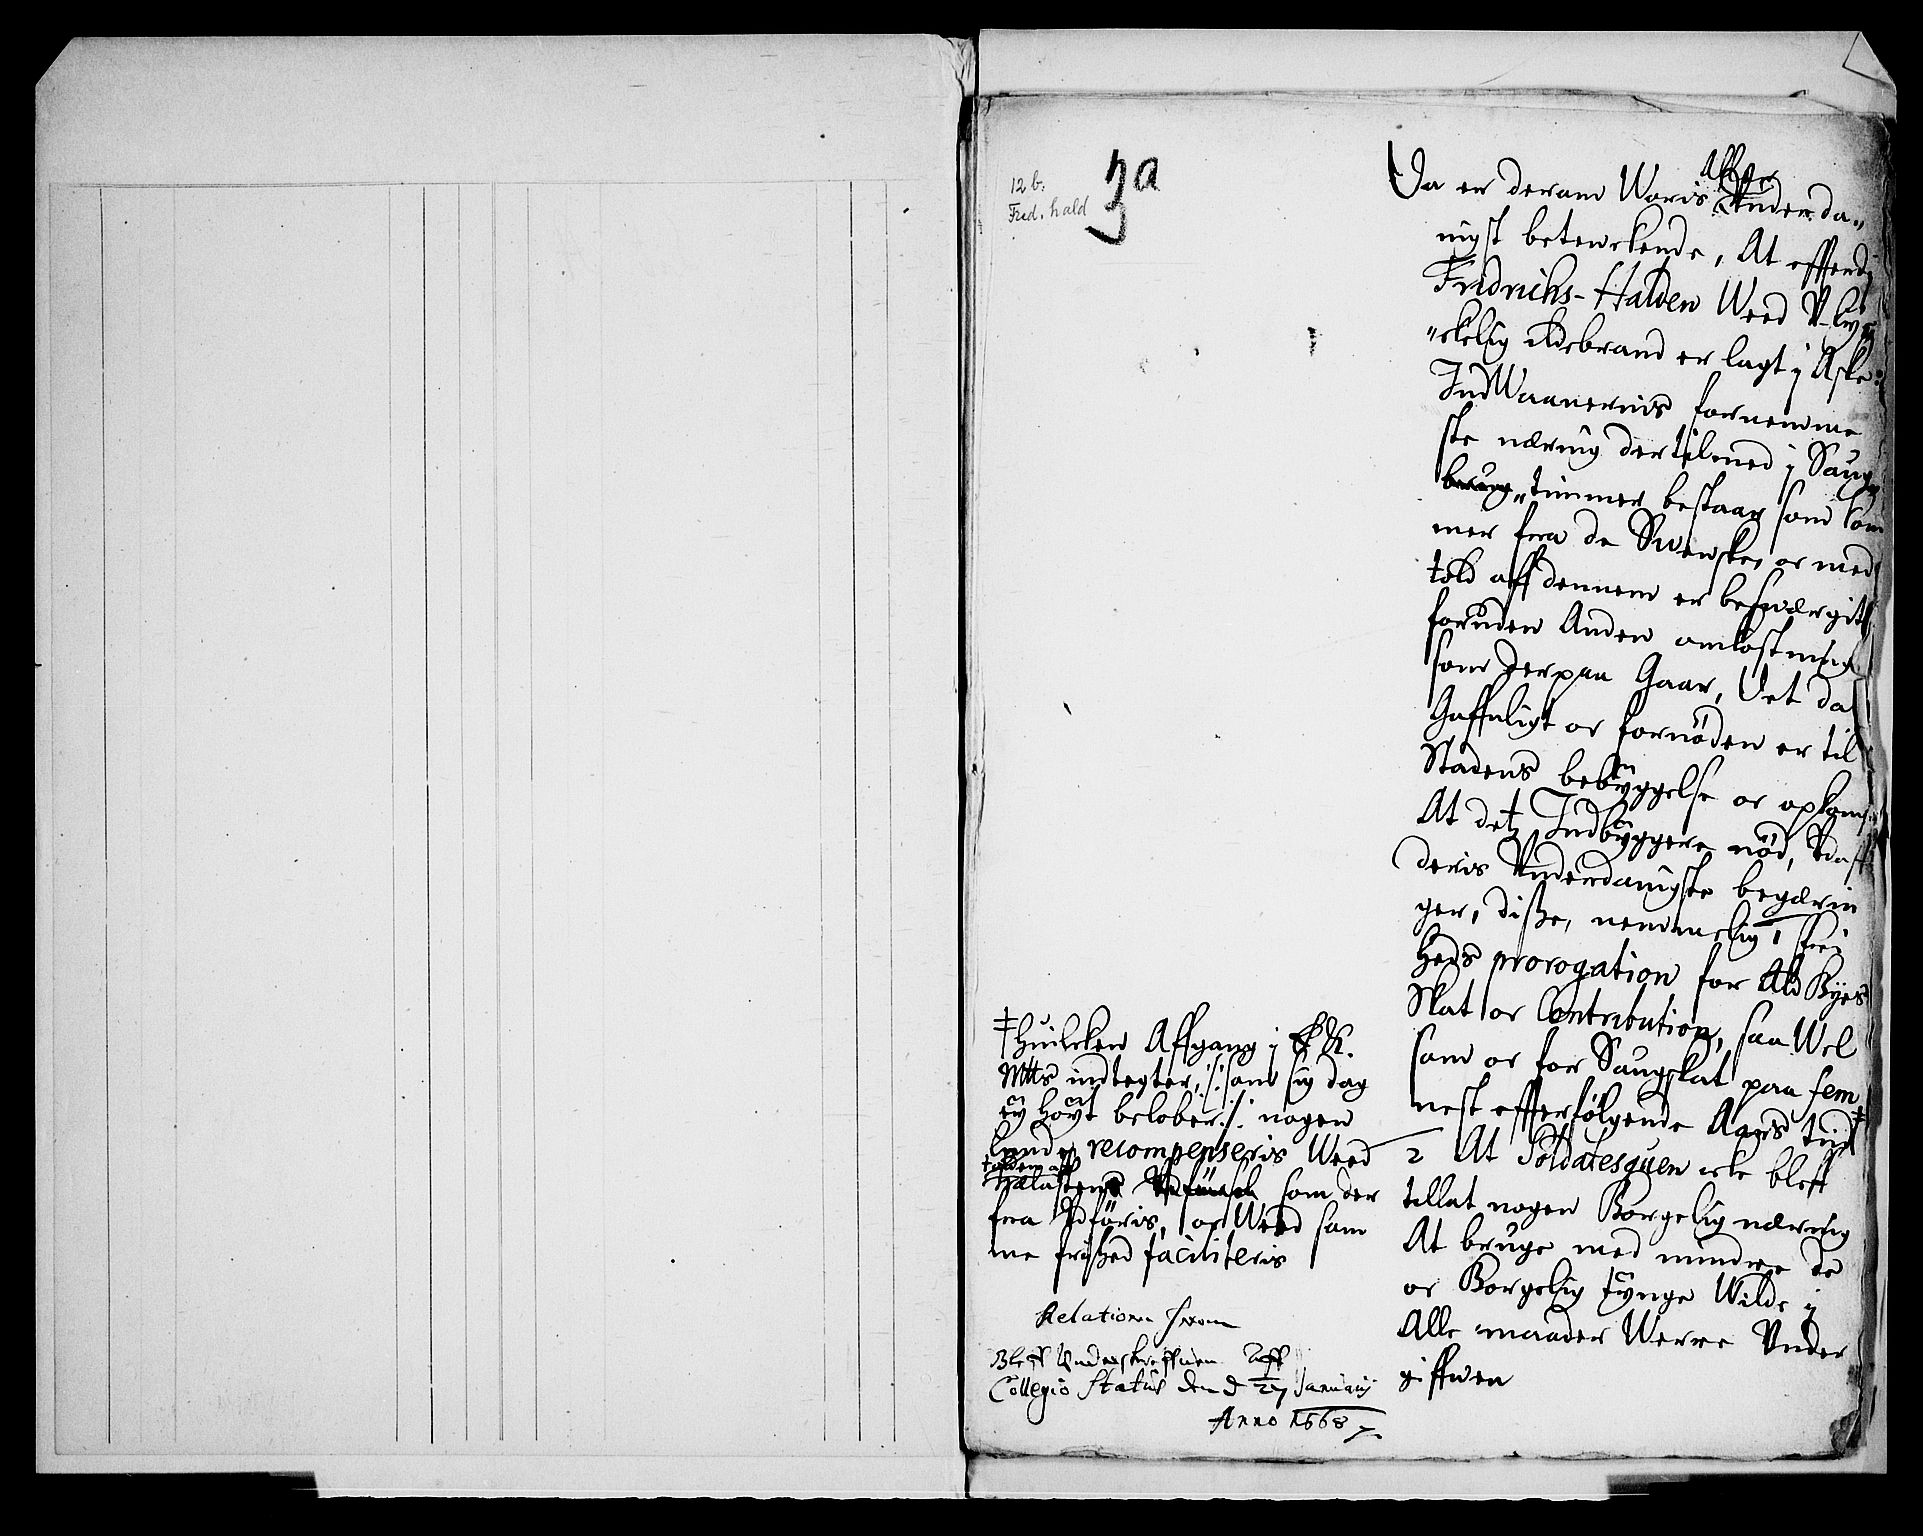 12 b.
Fred. hald
3a
Da er derom Woris Aller Vnderda„
nigst betenckende, At effterdj
Fridrichs-Halden Weed V-lyck
„skelig Ildebrand er lagt j Aske:
IndWaanernis fornemme
ste næring dertilmed j Saug
brug„ timmer bestaar som kom
mer fra de Swenske, oc med
told aff dennem er beswærgitt,
foruden Anden omkostning
som derpaa Gaar, Det da
Gaffnligt oc fornöden er til
Stadens bebÿggelse oc opkomst
At detz Indbÿggere nöd,
deris Vnderdanigste begærin
ger, disse, nemmelig 1 fri
heds prorogation for Ald Byes
Skat oc Contribution, saa Wel
som oc for Saugskat paa fem
nest effterfölgende Aars tid ‡
2 At Soldatesquen icke bleff
tillat nogen Borgelig næring
At bruge med mindre de
oc Borgelig tÿnge Wilde j
Alle maader Werre Vnder
giffwen
‡ Huilcken Affgang j K.
Mtts indtegter, /: som sig dog
eÿ höÿt beløber :/ nogen
lunde recompenseris Weed
tolden aff
Trælasten som der
fra Vdföris, oc Weed sam
me frihed faciliteris
Relation from
Bleff Underskreffuen Aff
Collegio Status den d 27 Januarij
Anno 1668